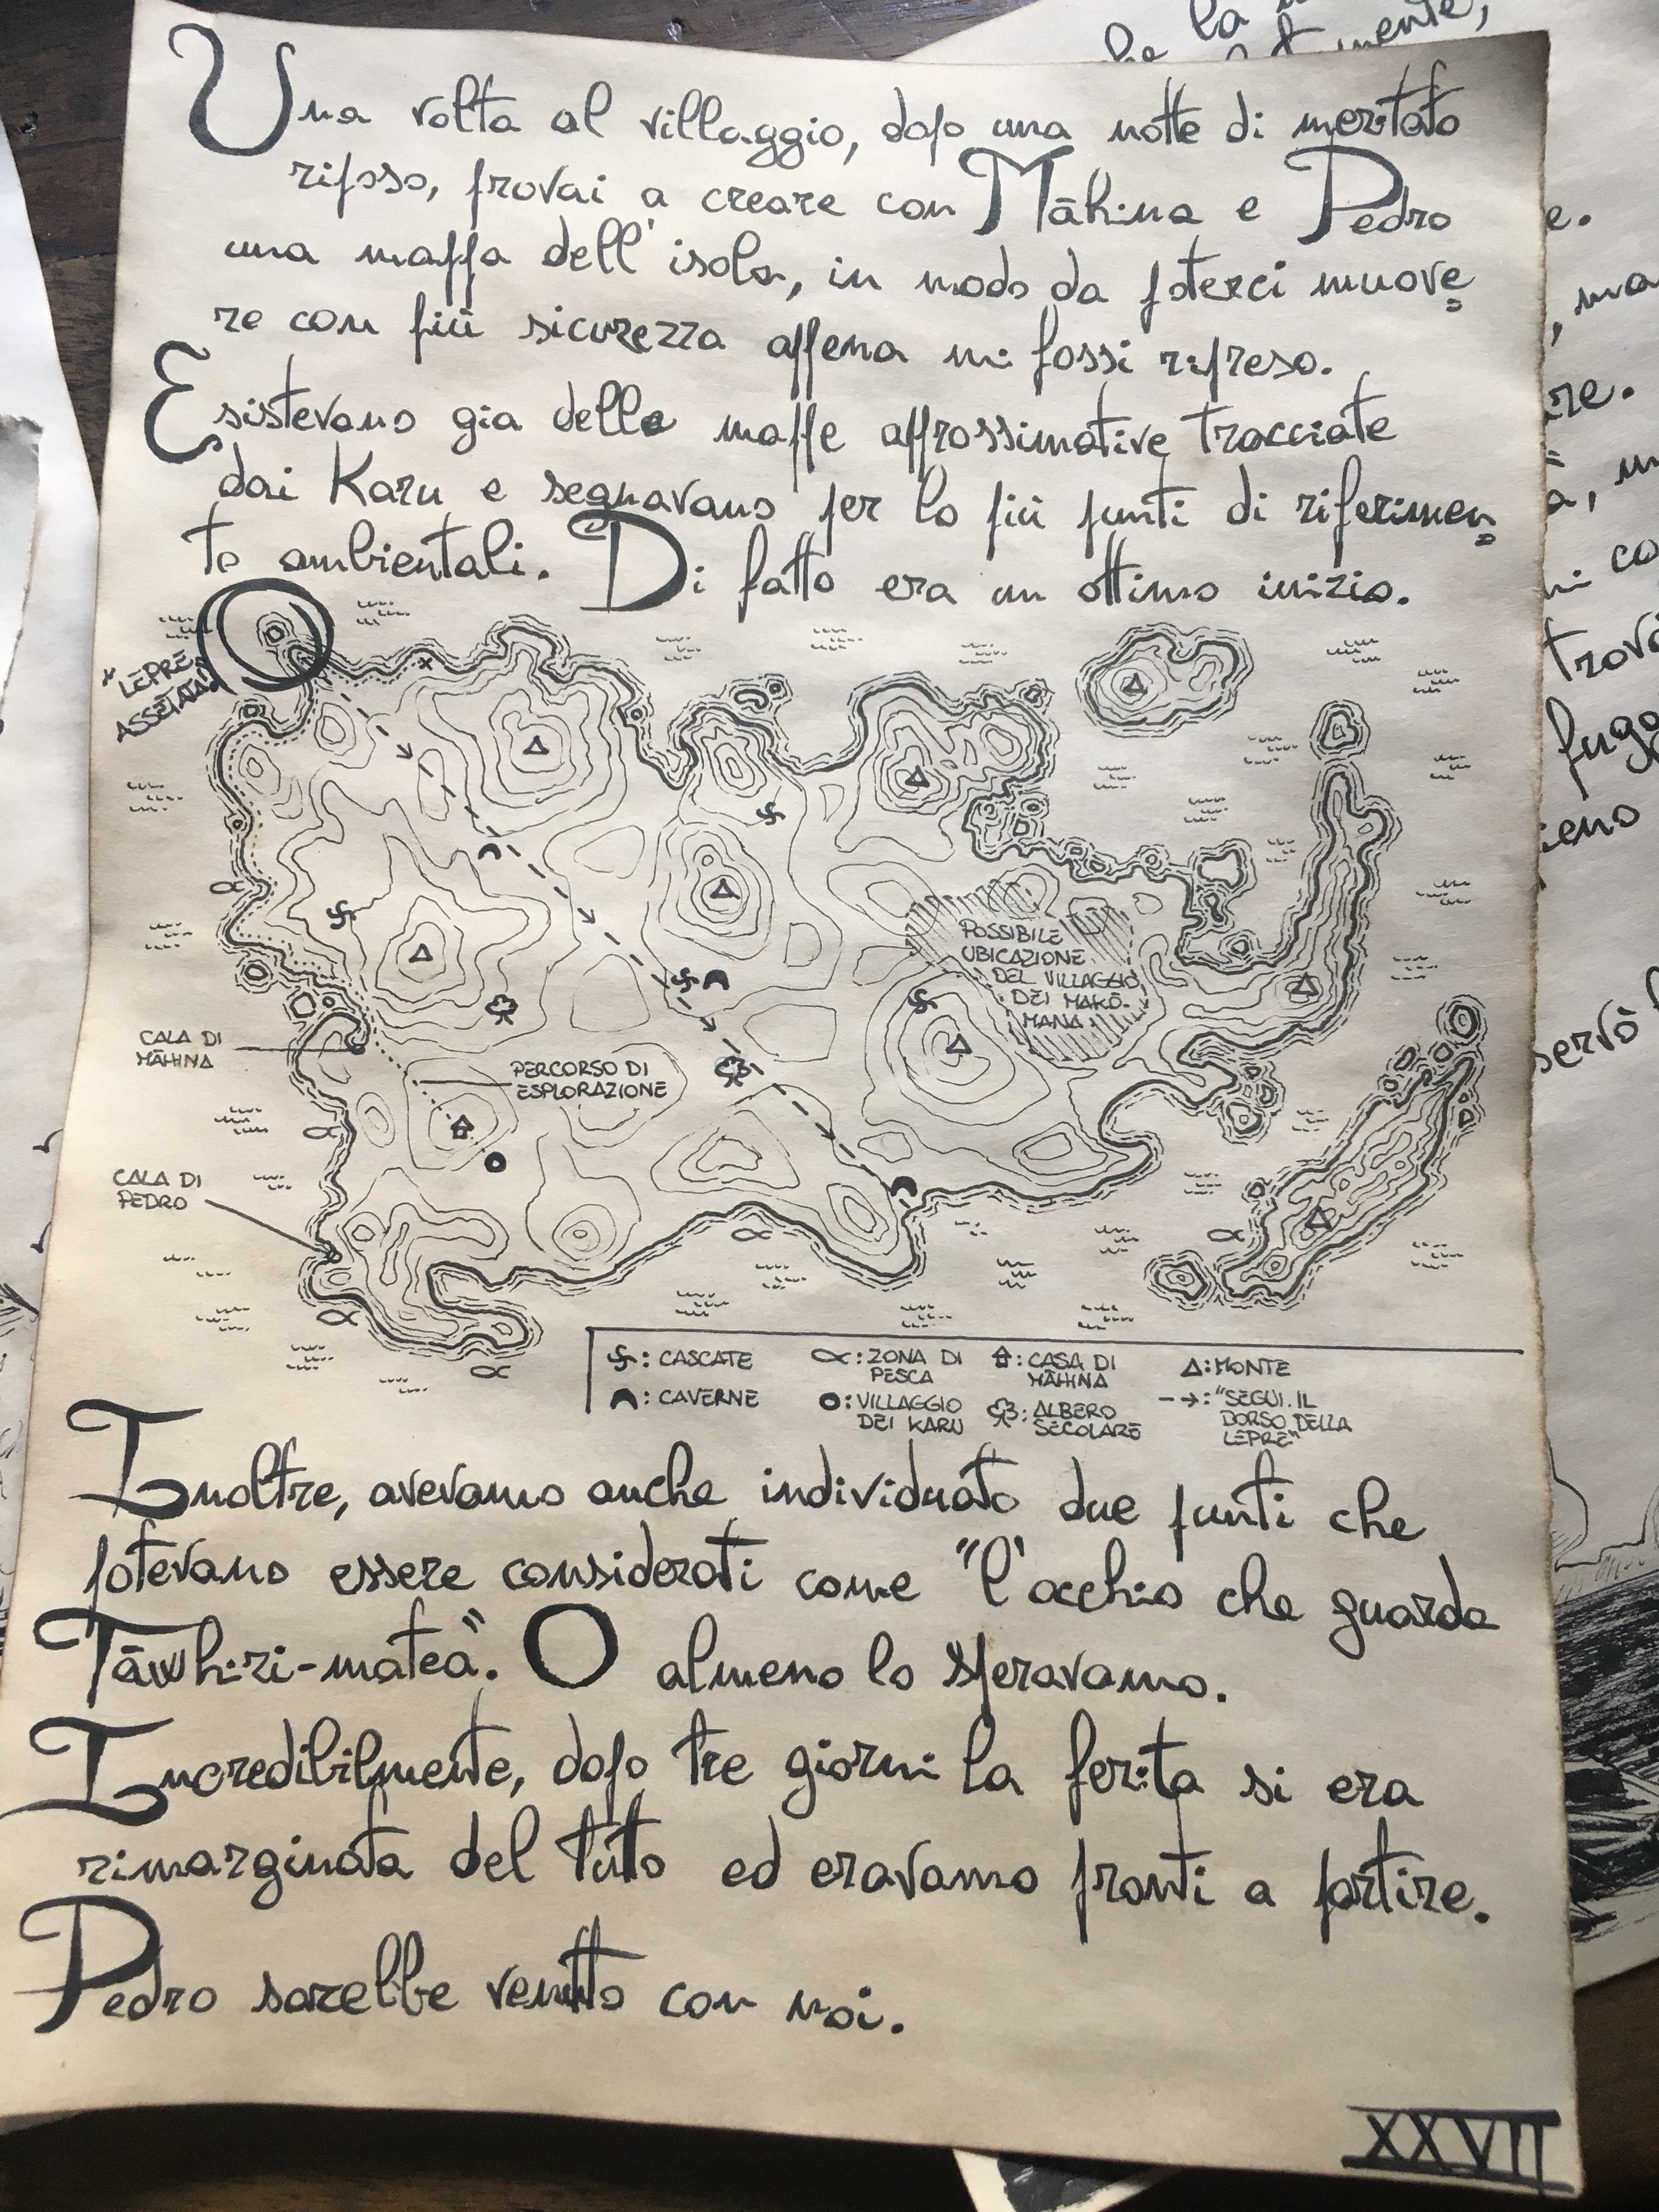 Una volta al villaggio, dopo una notte di meritato
riposo, provai a creare con Māhina e Pedro
una mappa dell'isola, in modo da poterci muove
re con più sicurezza appena mi fossi ripreso.
Esistevano gia delle mappe approssimative tracciate
dai Karu e segnavano per lo più punti di riferimen
to ambientali. Di fatto era un ottimo inizio.
"LEPRE
ASSETATA"
POSSIBILE
UBICAZIONE
DEL VILLAGGIO
DEI MAKŌ-
MANA
CALA DI
MĀHINA
PERCORSO DI
ESPLORAZIONE
CALA DI
PEDRO
: CASCATE
: ZONA DI
PESCA
: CASA DI
MĀHINA
: MONTE
: CAVERNE
: VILLAGGIO
DEI KARU
: ALBERO
SECOLARE
: "SEGUI IL
DORSO DELLA
LEPRE"
Inoltre, avevamo anche individuato due punti che
potevano essere considerati come "l'occhio che guarda
Tāwhiri-mateā". O almeno lo speravamo.
Incredibilmente, dopo tre giorni la ferita si era
rimarginata del tutto ed eravamo pronti a partire.
Pedro sarebbe venuto con noi.
XXVII